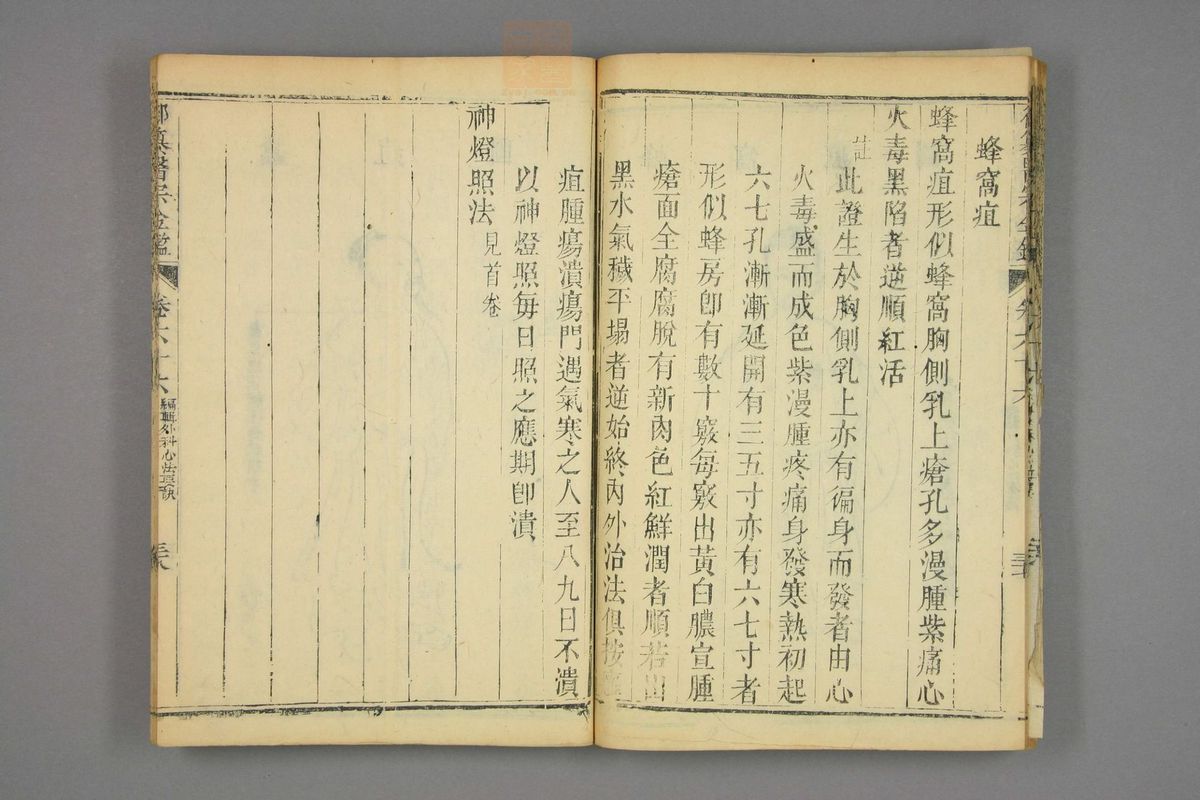 蜂窩疽
蜂窩疽形似蜂窩胸側乳上瘡孔多漫腫紫痛心
火毒黑陷者逆順紅活
註此證生於胸側乳上亦有徧身而發者由心
火毒盛而成色紫漫腫疼痛身發寒熱初起
六七孔漸漸延開有三五寸亦有六七寸者
形似蜂房卽有數十竅每竅出黃白膿宣腫
瘡面全腐腐脫有新肉色紅鮮潤者順若出
黑水氣穢平塌者逆始終內外治法俱按
疽腫瘍潰瘍門遇氣寒之人至八九日不潰
以神燈照每日照之應期卽潰
神燈照法見首卷
御纂醫宗金鑑
卷六十六
編輯外科心法要訣